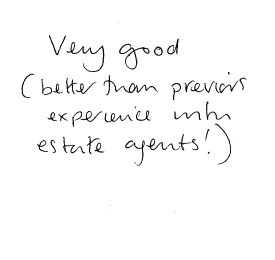 Very good
(better than previous
experience with
estate agents!)